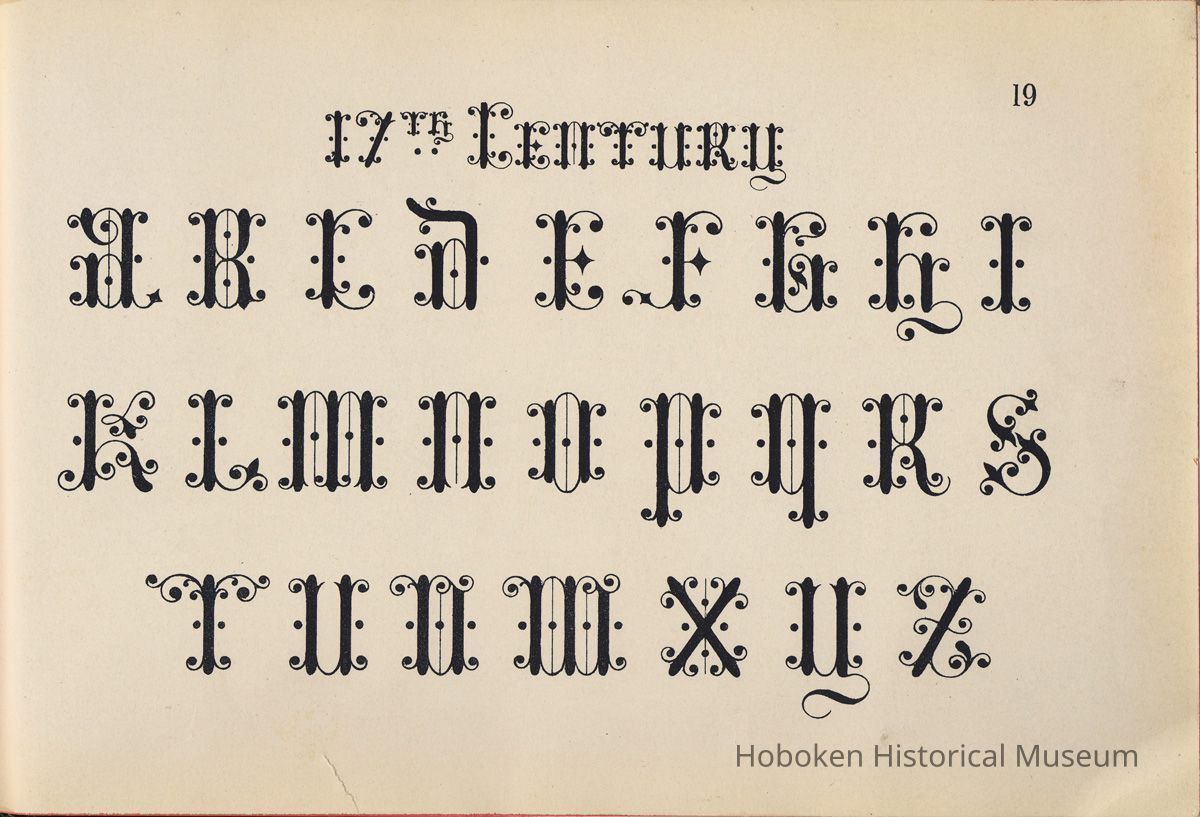 19
17th Century
A B C D E F G H I
K L M N O P Q R S
T U V W X Y Z
Hoboken Historical Museum